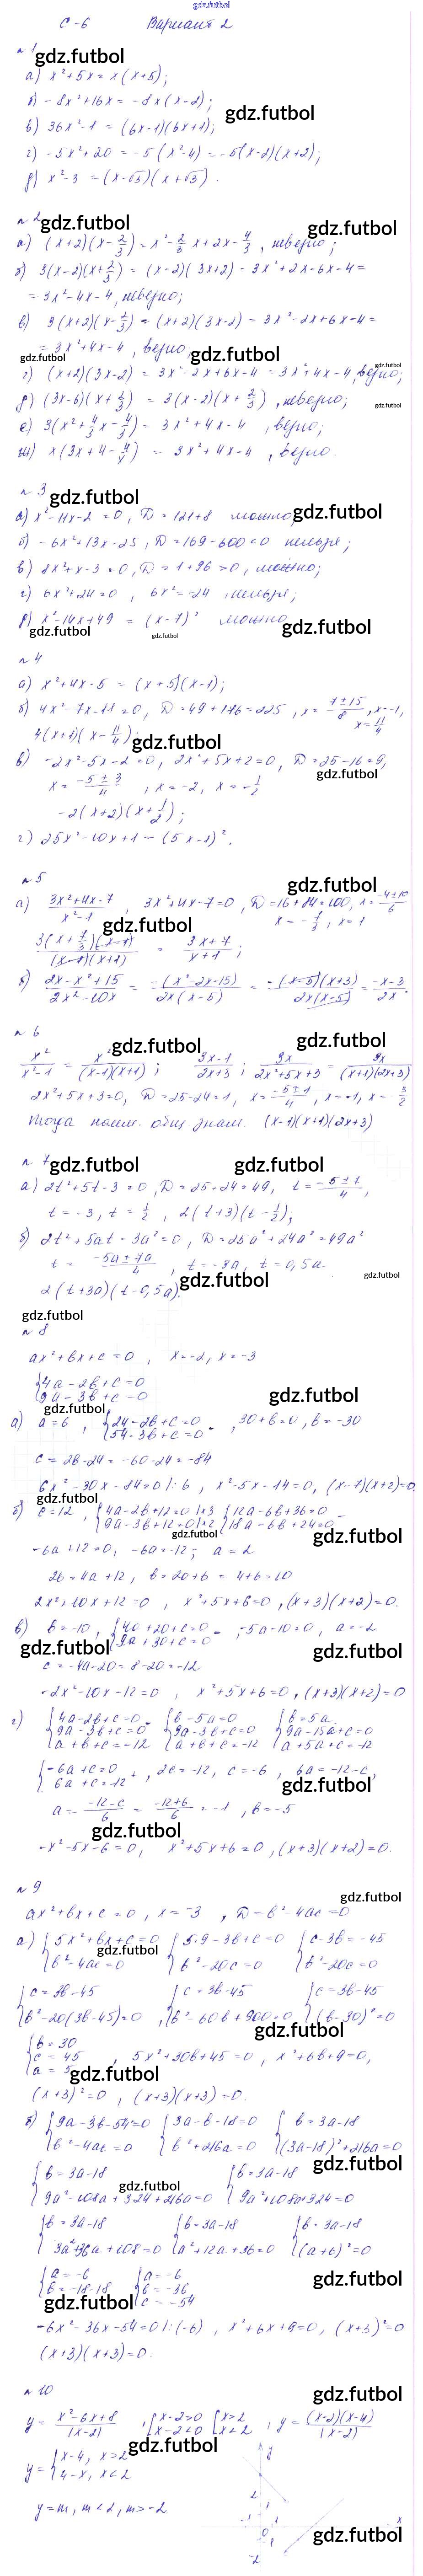 gdz.futbol
С-6 Вариант 2
№ 1 gdz.futbol
а) x² + 5x = x(x+5);
б) -8x² + 16x = -8x(x-2);
gdz.futbol
в) 36x² - 1 = (6x-1)(6x+1);
г) -5x² + 20 = -5(x²-4) = -5(x-2)(x+2);
д) x² - 3 = (x-√3)(x+√3).
№ 2 gdz.futbol gdz.futbol
а) (x+2)(x-2/3) = x² - 2/3 x + 2x - 4/3, неверно;
б) 3(x-2)(x+2/3) = (x-2)(3x+2) = 3x² + 2x - 6x - 4 =
= 3x² - 4x - 4, неверно;
в) 3(x+2)(x-2/3) = (x+2)(3x-2) = 3x² - 2x + 6x - 4 =
= 3x² + 4x - 4, верно;
gdz.futbol gdz.futbol gdz.futbol
г) (x+2)(3x-2) = 3x² - 2x + 6x - 4 = 3x² + 4x - 4, верно;
д) (3x-6)(x+2/3) = 3(x-2)(x+2/3), неверно;
gdz.futbol
е) 3(x² + 4/3 x - 4/3) = 3x² + 4x - 4, верно;
ж) x(3x + 4 - 4/x) = 3x² + 4x - 4, верно.
№ 3 gdz.futbol
а) x² - 11x - 2 = 0, D = 121+8 можно; gdz.futbol
б) -6x² + 13x - 25, D = 169 - 600 < 0 нельзя;
в) 2x² + x - 3 = 0, D = 1 + 96 > 0, можно;
г) 6x² + 24 = 0, 6x² = -24, нельзя;
д) x² - 14x + 49 = (x-7)² можно
gdz.futbol gdz.futbol gdz.futbol
№ 4
а) x² + 4x - 5 = (x+5)(x-1);
б) 4x² - 7x - 11 = 0, D = 49 + 176 = 225, x = (7±15)/8, x = -1, x = 11/4
4(x+1)(x - 11/4);
gdz.futbol
в) -2x² - 5x - 2 = 0, 2x² + 5x + 2 = 0, D = 25 - 16 = 9,
gdz.futbol
x = (-5±3)/4, x = -2, x = -1/2
-2(x+2)(x+1/2);
г) 25x² - 10x + 1 = (5x-1)².
№ 5 gdz.futbol
а) (3x²+4x-7)/(x²-1), 3x²+4x-7=0, D=16+84=100, x = (-4±10)/6
x = -7/3, x = 1
gdz.futbol
3(x+7/3)(x-1)/((x-1)(x+1)) = (3x+7)/(x+1);
б) (2x-x²+15)/(2x²-10x) = -(x²-2x-15)/(2x(x-5)) = -(x-5)(x+3)/(2x(x-5)) = (-x-3)/2x.
№ 6 gdz.futbol gdz.futbol
x²/(x²-1) = x²/((x-1)(x+1)); (3x-1)/(2x+3); 9x/(2x²+5x+3) = 9x/((x+1)(2x+3))
2x²+5x+3=0, D=25-24=1, x = (-5±1)/4, x=-1, x=-3/2
Тогда наим. общ. знам. (x-1)(x+1)(2x+3)
№ 7 gdz.futbol gdz.futbol
а) 2t²+5t-3=0, D=25+24=49, t = (-5±7)/4,
t = -3, t = 1/2, 2(t+3)(t-1/2);
б) 2t²+5at-3a²=0, D=25a²+24a²=49a²
t = (-5a±7a)/4, t = -3a, t = 0,5a
gdz.futbol gdz.futbol
2(t+3a)(t-0,5a).
gdz.futbol
№ 8
ax²+bx+c=0, x=-2, x=-3
{4a-2b+c=0
{9a-3b+c=0
gdz.futbol gdz.futbol
а) a=6, {24-2b+c=0 -, 30+b=0, b=-30
{54-3b+c=0
c = 2b-24 = -60-24 = -84
6x²-30x-84=0 |:6, x²-5x-14=0, (x-7)(x+2)=0.
gdz.futbol
б) c=12, {4a-2b+12=0 |×3 {12a-6b+36=0 -
{9a-3b+12=0 |×2 {18a-6b+24=0
gdz.futbol gdz.futbol
-6a+12=0, -6a=-12; a=2
2b=4a+12, b=20+6=4+6=10
2x²+10x+12=0, x²+5x+6=0, (x+3)(x+2)=0.
в) b=-10, {4a+20+c=0 -, -5a-10=0, a=-2
{9a+30+c=0
gdz.futbol gdz.futbol
c=-4a-20=8-20=-12
-2x²-10x-12=0, x²+5x+6=0, (x+3)(x+2)=0
г) {4a-2b+c=0 - {b-5a=0 {b=5a
{9a-3b+c=0 {9a-3b+c=0 {9a-15a+c=0
{a+b+c=-12 {a+b+c=-12 {a+5a+c=-12
{-6a+c=0 +, 2c=-12, c=-6, 6a=-12-c,
{6a+c=-12
gdz.futbol
a = (-12-c)/6 = (-12+6)/6 = -1, b=-5
gdz.futbol
-x²-5x-6=0, x²+5x+6=0, (x+3)(x+2)=0.
№ 9 gdz.futbol
ax²+bx+c=0, x=-3, D=b²-4ac=0
а) {5x²+bx+c=0 {5·9-3b+c=0 {c-3b=-45
gdz.futbol
{b²-4ac=0 {b²-20c=0 {b²-20c=0
{c=3b-45 {c=3b-45 {c=3b-45
{b²-20(3b-45)=0, {b²-60b+900=0, {(b-30)²=0
gdz.futbol
{b=30
{c=45, 5x²+30b+45=0, x²+6b+9=0,
{a=5
gdz.futbol
(x+3)²=0, (x+3)(x+3)=0.
б) {9a-3b-54=0 {3a-b-18=0 {b=3a-18
{b²-4ac=0 {b²+216a=0 {(3a-18)²+216a=0
gdz.futbol
{b=3a-18 {b=3a-18
gdz.futbol
{9a²-108a+324+216a=0 {9a²+108a+324=0
{b=3a-18 {b=3a-18 {b=3a-18
{3a²+36a+108=0 {a²+12a+36=0 {(a+6)²=0
{a=-6 {a=-6
{b=-18-18 {b=-36
{c=-54
gdz.futbol gdz.futbol
-6x²-36x-54=0 |:(-6), x²+6x+9=0, (x+3)²=0
(x+3)(x+3)=0.
№ 10 gdz.futbol
y = (x²-6x+8)/|x-2|, [x-2>0 [x>2, y = (x-2)(x-4)/|x-2|
[x-2<0 [x<2
gdz.futbol
y = {x-4, x>2
{4-x, x<2
y=m, m<2, m>-2
y
2
1
-1 0 1 x
-2
gdz.futbol